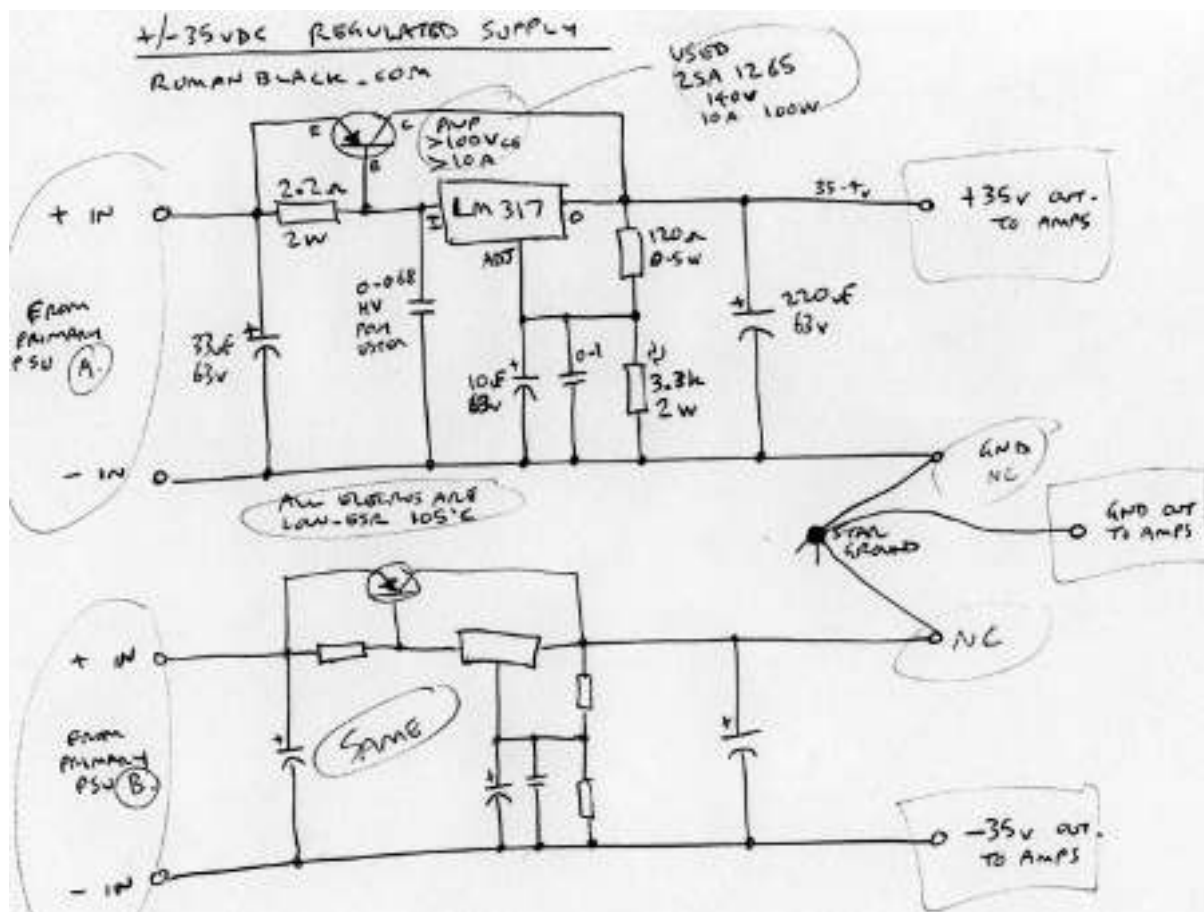 +/-35VDC REGULATED SUPPLY
ROMANBLACK.COM
USED
2SA 1265
140V
10A 100W
E
C
B
PNP
>100VCE
>10A
2.2Ω
2W
+ IN
I
LM317
O
ADJ
35.4V
+35V OUT.
TO AMPS
120Ω
0.5W
FROM
PRIMARY
PSU A.
33uF
63V
+
0.068
HV
POLY
ESTER
10uF
63V
+
0.1
3.3k
2W
+
220uF
63V
- IN
GND
NC
ALL ELECTROS ARE
LOW-ESR 105°C
STAR
GROUND
GND OUT
TO AMPS
+ IN
NC
FROM
PRIMARY
PSU B.
SAME
+
+
+
- IN
-35V OUT.
TO AMPS